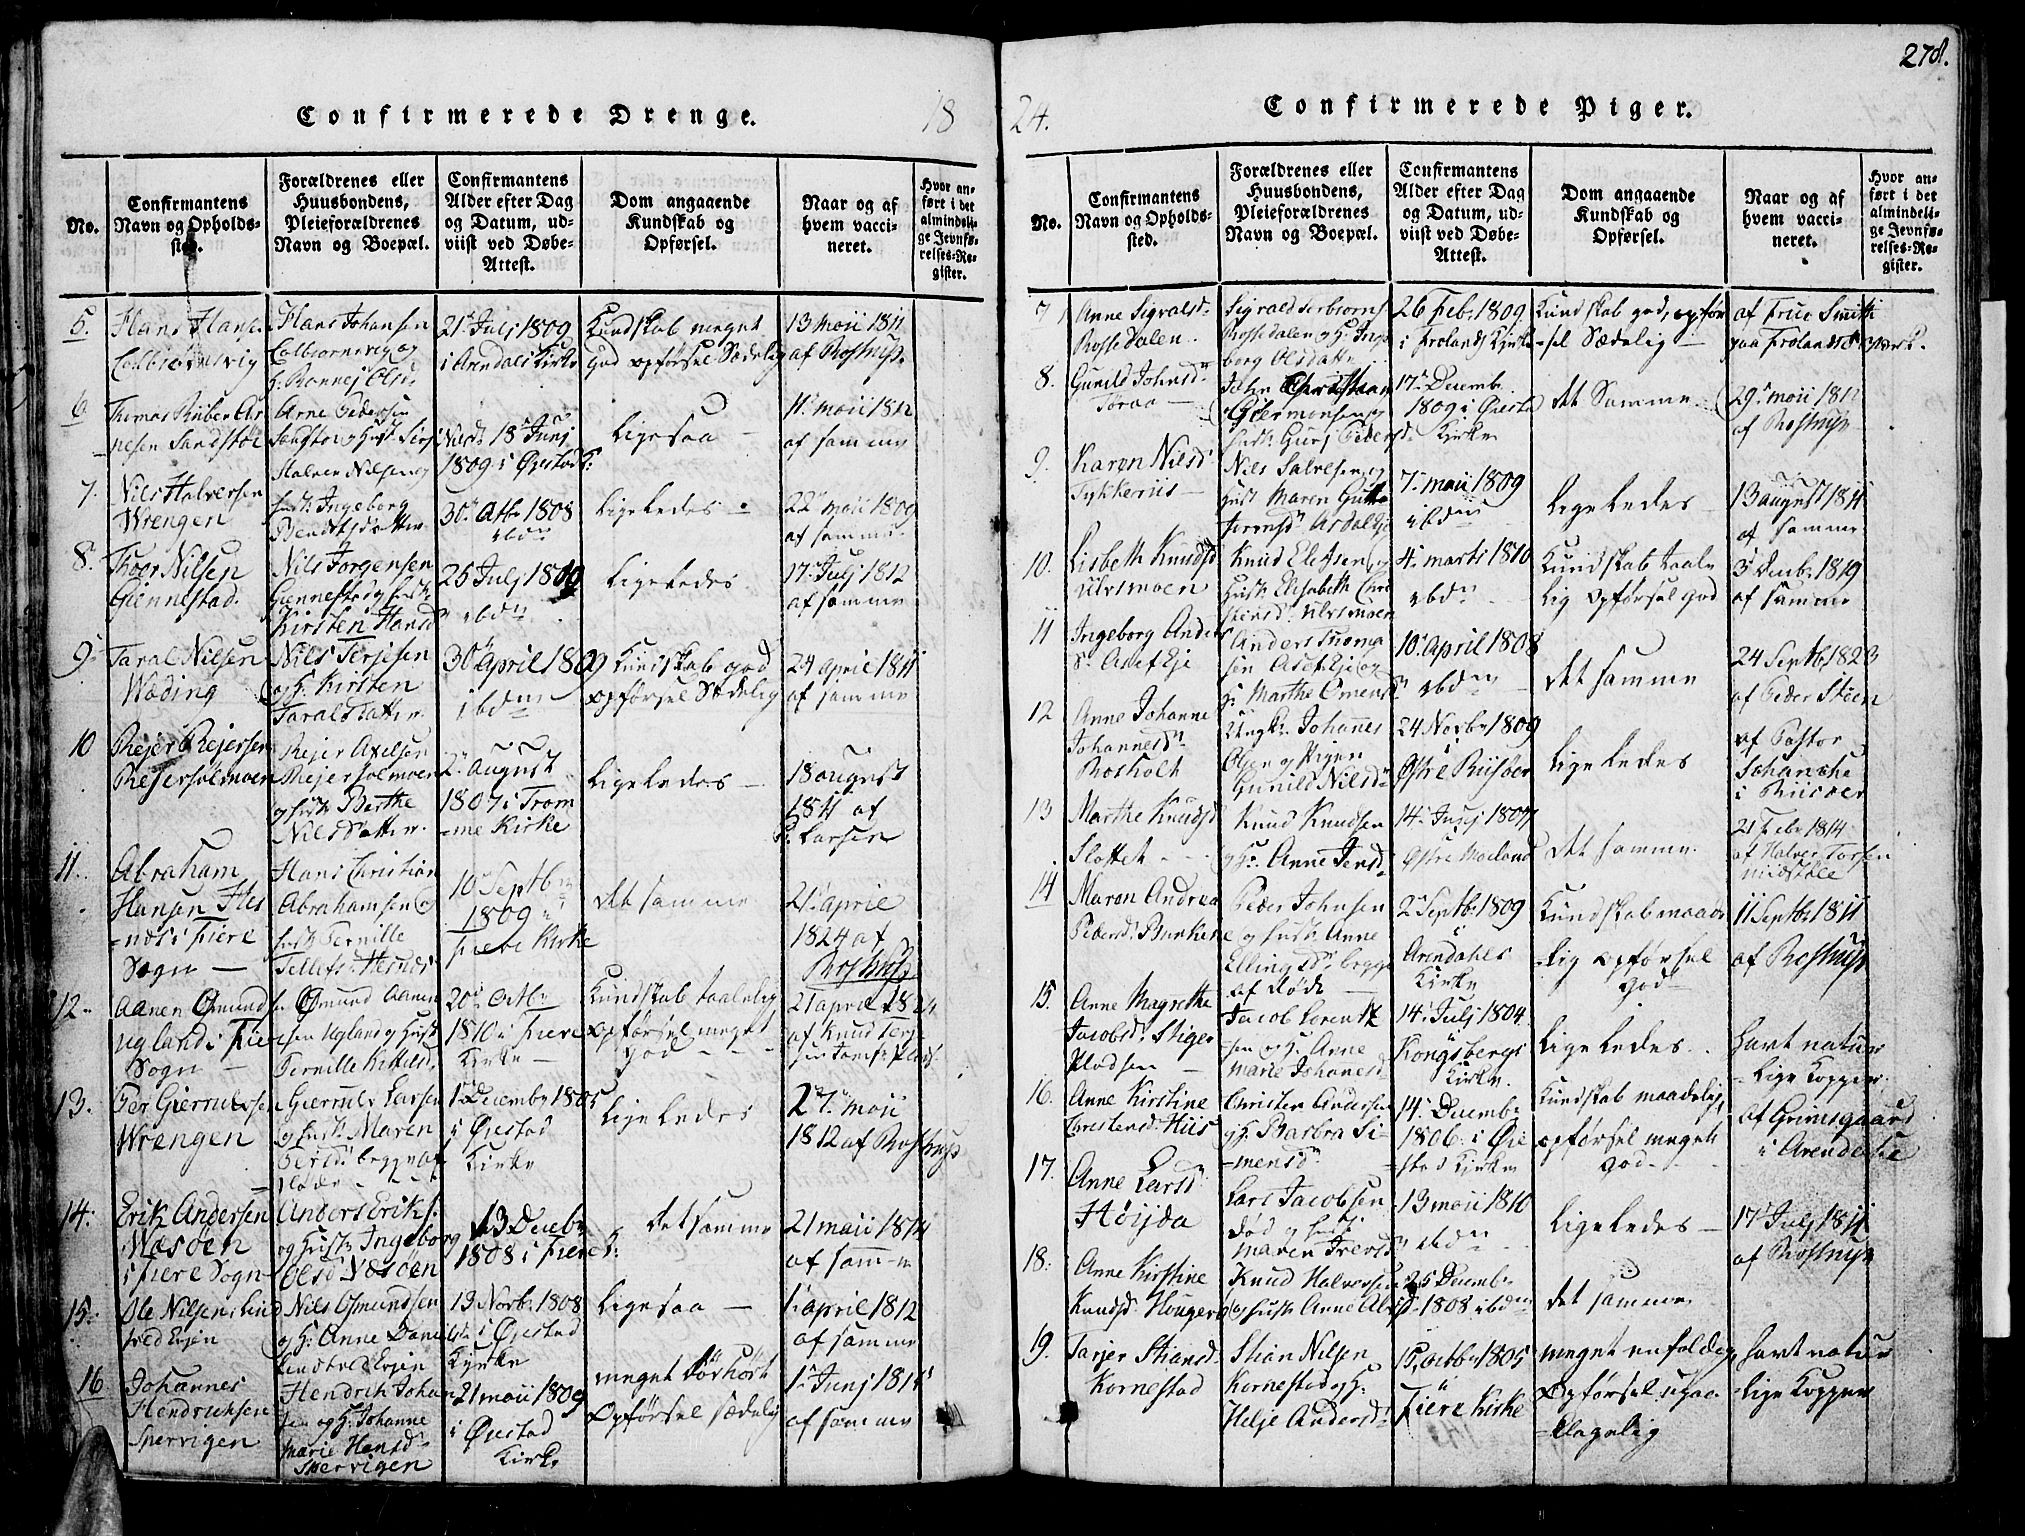 278.
Confirmerede Drenge.
18
No.
Confirmantens Navn og Opholds-sted.
Forældrenes eller Huusbondens, Pleieforældrenes Navn og Boepæl.
Confirmantens Alder efter Dag og Datum, ud-viist ved Døbe-Attest.
Dom angaaende Kundskab og Opførsel.
Naar og af hvem vacci-neret.
Hvor an-ført i det almindeli-ge Jevnfø-relses-Re-gister.
5.
Hans Hans.
Colbiørnsvig
Hans Johansen
Colbiørnsvig og
H. Ronnej Ols
21 Julj 1809
i Arendals Kirke
Kundskab meget
god opførsel Sædelig
13 Maii 1811
af Rostrup
6
Thomas Ruber Ar
nesen Sandstøe
Arne Pedersen
Sandstøe og Hust. Sirj
Nied. 18 Junj
1809 i Øiestad K:
Ligesaa
11. Maii 1812
af samme
7.
Nils Halversen
Wrengen
Halver Nilsen og
hust. Ingeborg
Bendtsdatter
30. Octb 1808
ibdm
Ligeledes
22 Maii 1809
af samme
8.
Thoer Nilsen
Giennestad.
Nils Jorgensen
Giennestad og hustr
Kirsten Hansd
25 Julj 1809
ibdm
Ligeledes
17. Julj 1812
af samme
9
Taral Nilsen
Wøding
Nils Terjesen
og H. Kirsten
Taralsdatter
30 April 1809
ibdm
Kundskab god
opførsel Sædelig
24 april 1811
af samme
10
Rejer Rejersen
Rejersølmoen
Rejer Axelsen
Rejersølmoen
og hust. Berthe
Nilsdatter
2. August
1807 i Trom
=me Kirke
Ligeledes
18 august
1811 af
P. Larsen
11.
Abraham
Hansen Hes
=næs i Fiere
Sogn
Hans Christian
Abrahamsen og
hust. Pernille
Tellefsd. Hesnæs
10 Septbr
1809 i
Fiere Kirke
det samme
21. april
1824 af
Rostrup
12
Aanen Osmunds
Ugland i Fiere
Sogn
Osmund Aanen
sen Ugland og Hust
Pernille Kittelsd.
20. Octbr
1810 i Fiere
Kirke
Kundskab taalelig
opførsel meget
god
21 april 1824
af Knud Terje
13.
Per Gierrulsen
Wrengen
Gierruls Larsen
og hust. Maren
Persd. begge af
døde
1. December 1805
i Øiestad
Kirke
Ligeledes
27. Maii
1812 af Rostrup
14.
Erik Andersen
Næsøen
i Fiere Sogn
Anders Eriks:
og Hust. Ingeborg
Olsd Næsøen
13 Decbr
1808 i Fiere K:
det samme
21 Maii 1814
af samme
15.
Ole Nilsen. Lind
tved Eyen
Nils Osmundsen
og H. Anne Daniels
Lindtved Eyen
13 Novb. 1808
i Øiestad
Kirke
Ligesaa
1. april 1812
af samme
16
Johannes
Hendriksen
Sperrvigen
Hendrik Johan
sen og H. Johanne
Marie Hansd.
Sperrvigen
21 Maii 1809
i Øiestad
Kirke
meget tørhørt
Opførsel sædelig
1. Junj 1814
af samme
24.
Confirmerede Piger.
No.
Confirmantens Navn og Opholds-sted.
Forældrenes eller Huusbondens, Pleieforældrenes Navn og Boepæl.
Confirmantens Alder efter Dag og Datum, ud-viist ved Døbe-Attest.
Dom angaaende Kundskab og Opførsel.
Naar og af hvem vacci-neret.
Hvor an-ført i det almindeli-ge Jevnfø-relses-Re-gister.
7
Anne Sigvalsd
Rossedalen
Sigvald Torbiørns
Rossedalen og H. Inge
borg Olsdatter
26 Feb. 1809
i Frolands Kirke
Kundskab god, opfør
=sel Sædelig
af Frue Smith
paa Frolands Værk.
8.
Gunild Johnsd
Toraa
John Christian
Giermonsen og
hust. Gurj Pedersd
17. Decemb.
1809 i Øiestad
Kirke
det Samme
29. Maii 1811
af Rostrup
9.
Karen Nilsd
Tykkeriis
Nils Salvesen og
hust Maren Gutte
7. Maii 1809
ibdm
ligeledes
13 august 1811
af samme
10.
Lisbeth Knudsd
Ulvsmoen
Knud Elefsen og
Hust. Elisabeth Chri
stensd. Ulvsmoen
4. Marti 1810
ibdm
Kundskab taale
lig opførsel god
3 Decb. 1819
af samme
11
Ingeborg Anders
d. Aasef Eje
Anders Thoma
sen Asef Eje og
H. Marthe Omensd
10. April 1808
ibdm
det samme
24 Septb 1823
af Peder Steen
12
Anne Johanne
Johannesd
Rosholt
Ungk. Johannes
Olsen og Pigen
Gunild Nilsd
24 Novbr 1809
Østre Riisøer
ligeledes
af Pastor
Schanche
i Riisøer
13
Marthe Knudsd
Slottet
Knud Knudsen
og H. Anne Jensd
14. Junj 1807
Østre Moland
det samme
21 Feb. 1814
af Halver Torsen
14
Maren Andrea
Pedersd. Barken
Peder Johnsen
og hust. Anne
Ellingsd. begge
af døde
2. Septb. 1809
Arendahls
Kirke
Kundskab maade
=lig opførsel
god
11 Septb. 1811
af Rostrup
15.
Anne Magrethe
Jacobsd. Stiger
Pladsen
Jacob Lorentz
=sen og H. Anne
Marie Johanesd.
14. Julj 1804
Kongsbergs
Kirke
ligeledes
havt natur
=lige Kopper
16.
Anne Kirstine
Christensd. Hiis
Christen Andersen
og H. Barbra Si
=mensd.
14. Decemb.
1806 i Øie
stad Kirke
Kundskab maadelig
opførsel meget
god
af Grimsgaard
i Arendahl
17.
Anne Larsd
Høyda
Lars Jacobsen
død og hust
Maren Trersd
13 Maii 1810
ibdm
ligeledes
17. Julj 1811
af Rostrup
18.
Anne Kirstine
Knudsd. Hougen
Knud Halversen
og hust Anne Alvsd
25 Decemb.
1808 ibdm
det samme
19.
Tarjer Stiansd.
Kornestad
Stian Nilsen
Kornestad og H.
Helje Andersd.
15. Octbr 1805
Fiere Kirke
meget enfoldig,
Opførsel upaa
=klagelig
havt natur
=lige Kopper